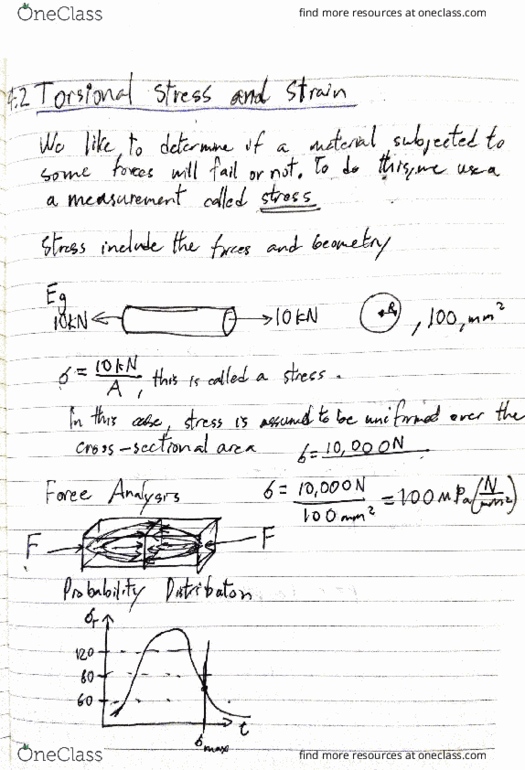 OneClass
find more resources at oneclass.com
4.2 Torsional Stress and Strain
We like to determine if a material subjected to
some forces will fail or not. To do this, we use a
a measurement called stress
Stress include the forces and Geometry
Eg
10kN 10kN , 100, mm²
σ = 10kN / A , this is called a stress.
In this case, stress is assumed to be uniformed over the
cross-sectional area σ = 10,000N
Force Analysis σ = 10,000N / 100mm² = 100MPa (N/mm²)
F F
Probability Distributon
σr
120
80
60
t
σmax
OneClass
find more resources at oneclass.com